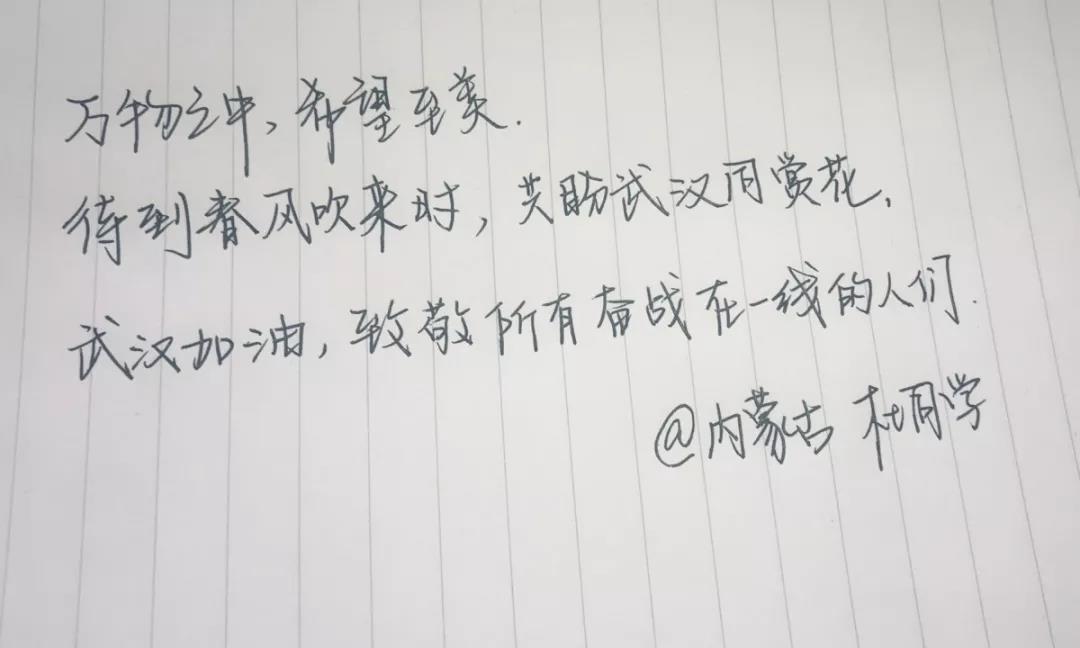 万物之中，希望至美.
待到春风吹来时，共盼武汉同赏花.
武汉加油，致敬所有奋战在一线的人们.
@内蒙古 杜同学